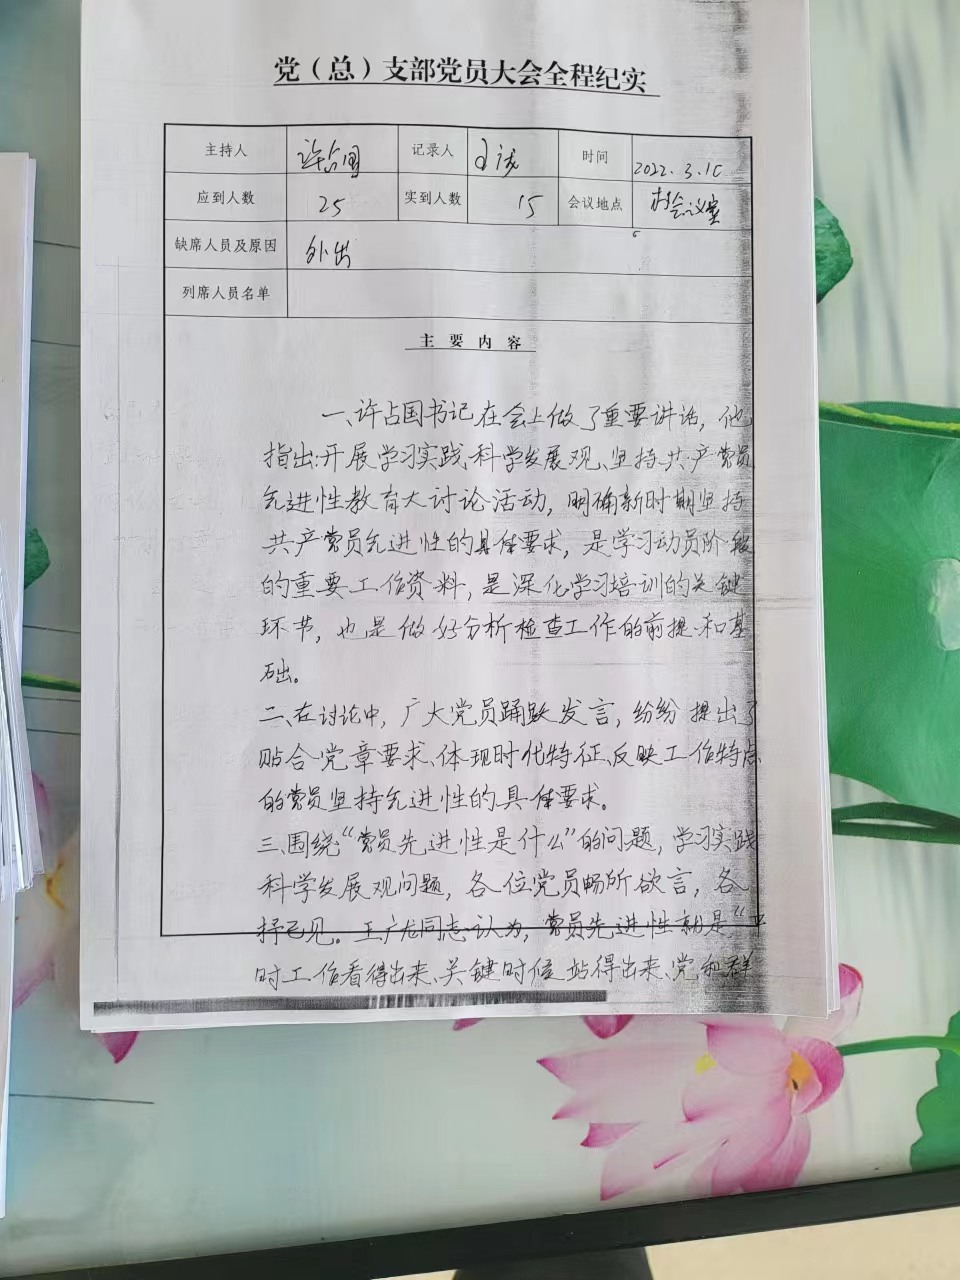 党（总）支部党员大会全程纪实
主持人 许占国 记录人 时间 2022.3.10
应到人数 25 实到人数 15 会议地点 村会议室
缺席人员及原因 外出
列席人员名单
主要内容
一、许占国书记在会上做了重要讲话，他
指出：开展学习实践科学发展观、坚持共产党员
先进性教育大讨论活动，明确新时期坚持
共产党员先进性的具体要求，是学习动员阶段
的重要工作资料，是深化学习培训的关键
环节，也是做好分析检查工作的前提和基
础。
二、在讨论中，广大党员踊跃发言，纷纷提出了
贴合党章要求、体现时代特征、反映工作特点
的党员坚持先进性的具体要求。
三、围绕“党员先进性是什么”的问题，学习实践
科学发展观问题，各位党员畅所欲言，各
抒己见。王广龙同志认为，党员先进性就是“平
时工作看得出来、关键时候站得出来、党和群